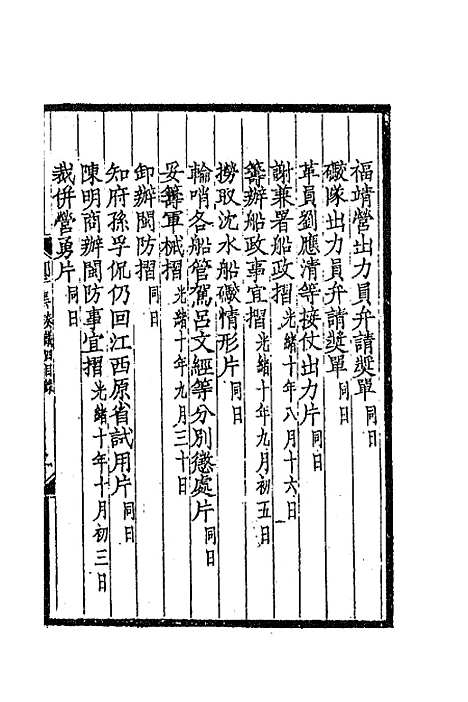 福靖營出力員弁請獎單同日
礮隊出力員弁請獎單同日
革員劉應清等接仗出力片同日
謝兼署船政摺光緒十年八月十六日
籌辦船政事宜摺光緒十年九月初五日
撈取沈水船礮情形片同日
輪哨各船管駕呂文經等分別懲處片同日
妥籌軍械摺光緒十年九月三十日
卸辦閩防摺同日
知府孫孚侃仍回江西原省試用片同日
陳明商辦閩防事宜摺光緒十年十月初三日
裁併營勇片同日